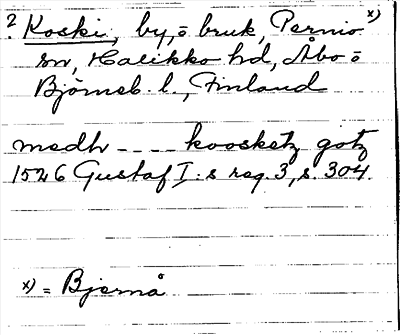 2 Koski, by, o bruk, Pernio x)
sn, Halikko hd, Åbo o
Björneb. l., Finland
medh - - - - koosketz gotz
1526 Gustaf I:s reg. 3, s. 304.
x) = Bjernå